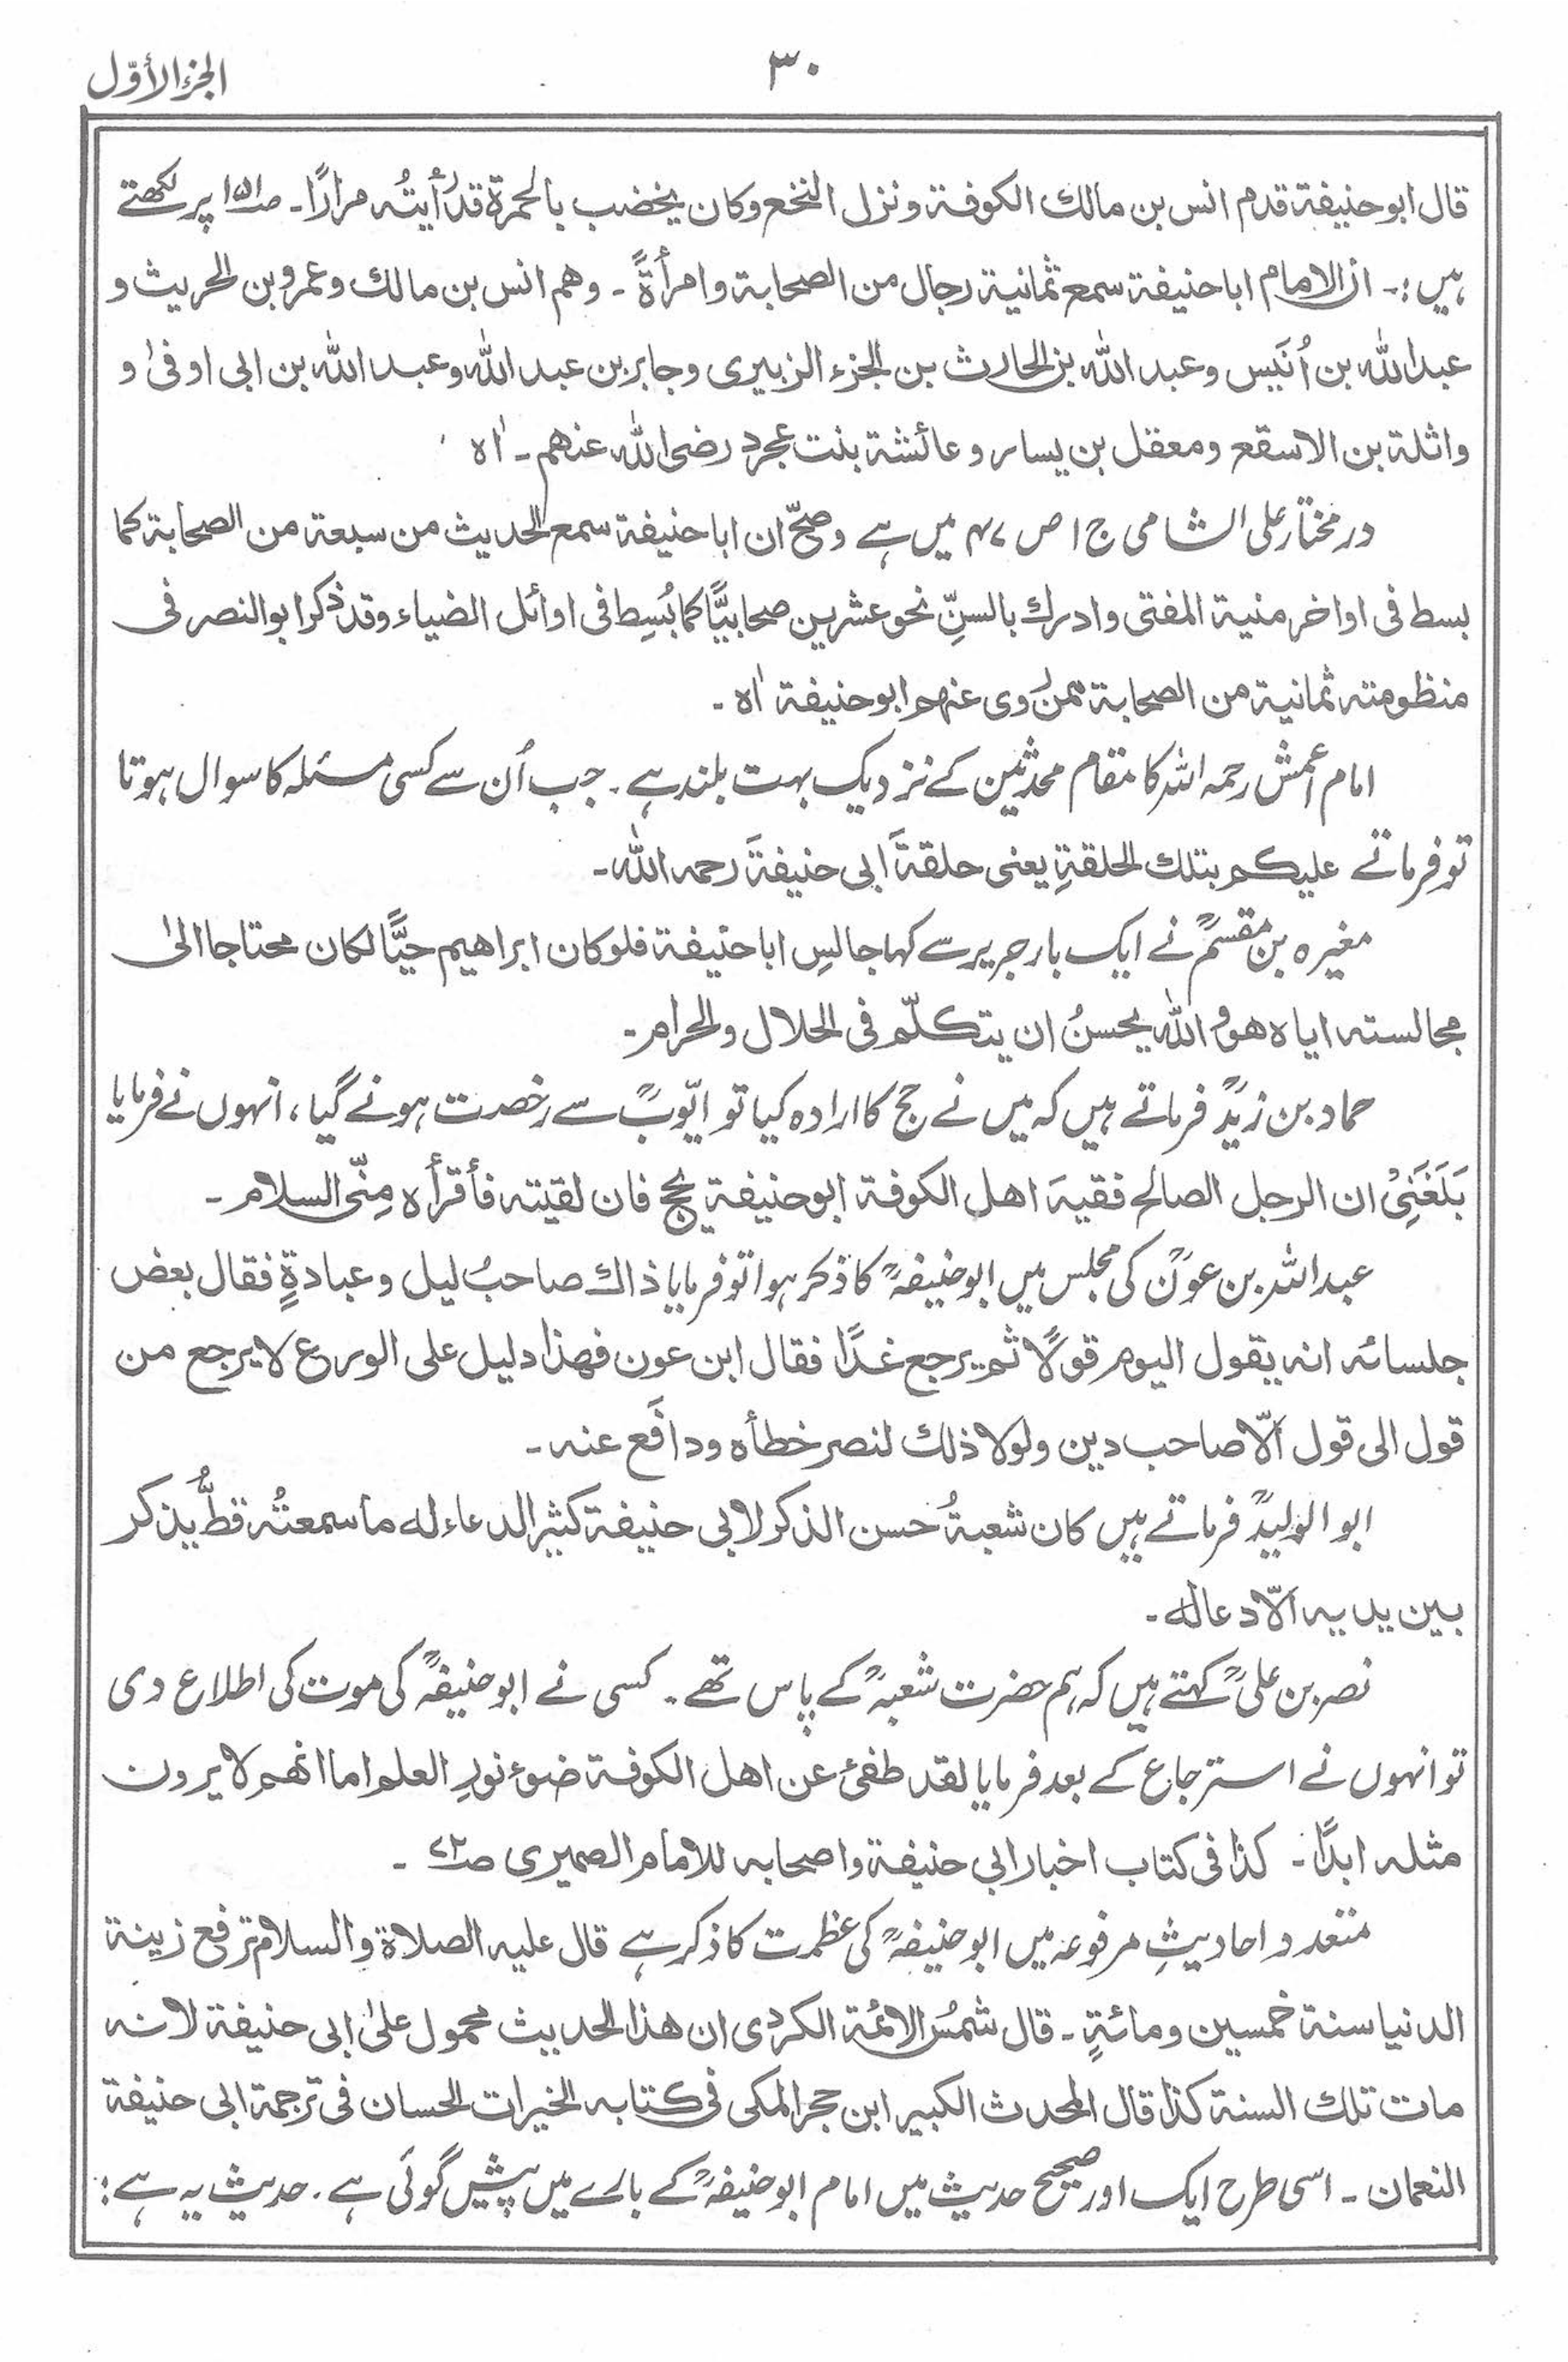 الجزء الأوّل
۳۰
قال ابوحنیفة قدم انس بن مالك الکوفة ونزل النخع وکان یخضب بالحمرة قد رأیتُه مرارًا۔ صـ۱۵۱ پر لکھتے
ہیں :۔ ان الامام اباحنیفة سمع ثمانیة رجال من الصحابة وامرأةً ۔ وهم انس بن مالك وعمرو بن الحریث و
عبد الله بن اُنَیس وعبد الله بن الحارث بن الجزء الزبیری وجابر بن عبد الله وعبد الله بن ابی اوفیٰ و
واثلة بن الاسقع ومعقل بن یسار وعائشة بنت عجرد رضی الله عنهم۔ اٰه
درمختار علی الشامی ج ۱ ص ۴۷ میں ہے وصحّ ان اباحنیفة سمع الحدیث من سبعة من الصحابة کما
بسط فی اواخر منیة المفتی وادرك بالسنّ نحو عشرین صحابیًّا کما بُسِط فی اوائل الضیاء وقد ذکر ابوالنصر فی
منظومته ثمانیة من الصحابة ممن رُوی عنهم ابوحنیفة اٰه ۔
امام اعمش رحمہ اللہ کا مقام محدثین کے نزدیک بہت بلند ہے ۔ جب اُن سے کسی مسئلہ کا سوال ہوتا
تو فرماتے علیکم بتلك الحلقةِ یعنی حلقةَ ابی حنیفةَ رحمه الله۔
مغیرہ بن مقسمؒ نے ایک بار جریر سے کہا جالسِ اباحنیفة فلوکان ابراهیم حیًّا لکان محتاجا الیٰ
مجالسته ایاه هو والله یحسنُ ان یتکلّم فی الحلال والحرام۔
حماد بن زیدؒ فرماتے ہیں کہ میں نے حج کا ارادہ کیا تو ایّوبؒ سے رخصت ہونے گیا، انہوں نے فرمایا
بَلَغَنِیْ ان الرجل الصالح فقیهَ اهل الکوفة ابوحنیفة یحج فان لقیته فأقرأه مِنّی السلام ۔
عبد اللہ بن عونؒ کی مجلس میں ابوحنیفہؒ کا ذکر ہوا تو فرمایا ذاك صاحبُ لیل وعبادةٍ فقال بعض
جلسائه انه یقول الیوم قولًا ثم یرجع غدًا فقال ابن عون فهذا دلیل علی الورع لا یرجع من
قول الی قول الّا صاحب دین ولولا ذلك لنصر خطأه ودافَع عنه ۔
ابو الولیدؒ فرماتے ہیں کان شعبةُ حسن الذکر لابی حنیفة کثیر الدعاء له ما سمعتُه قطُّ یذکر
بین یدیه الّا دعا له ۔
نصر بن علیؒ کہتے ہیں کہ ہم حضرت شعبہؒ کے پاس تھے ۔ کسی نے ابوحنیفہؒ کی موت کی اطلاع دی
تو انہوں نے استرجاع کے بعد فرمایا لقد طفیٔ عن اهل الکوفة ضوء نورِ العلم اما انهم لا یرون
مثله ابدًا ۔ کذا فی کتاب اخبار ابی حنیفة واصحابه للامام الصمیری صـ۷۲ ۔
متعدد احادیثِ مرفوعہ میں ابوحنیفہؒ کی عظمت کا ذکر ہے قال علیه الصلاة والسلام ترفع زینة
الدنیا سنة خمسین ومائةٍ ۔ قال شمسُ الائمة الکردی ان هذا الحدیث محمول علیٰ ابی حنیفة لانه
مات تلك السنة کذا قال المحدث الکبیر ابن حجر المکی فی کتابه الخیرات الحسان فی ترجمة ابی حنیفة
النعمان ۔ اسی طرح ایک اور صحیح حدیث میں امام ابوحنیفہؒ کے بارے میں پیشیں گوئی ہے ۔ حدیث یہ ہے :